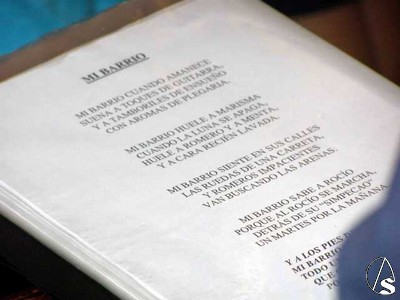 MI BARRIO
MI BARRIO CUANDO AMANECE
SUENA A TOQUES DE GUITARRA,
Y A TAMBORILES DE ENSUEÑO
CON AROMAS DE PLEGARIA
MI BARRIO HUELE A MARISMA
CUANDO LA LUNA SE APAGA,
HUELE A ROMERO Y A MENTA,
Y A CARA RECIÉN LAVADA.
MI BARRIO SIENTE EN SUS CALLES
LAS RUEDAS DE UNA CARRETA,
Y ROMEROS IMPACIENTES
VAN BUSCANDO LAS ARENAS.
MI BARRIO SABE A ROCÍO
PORQUE AL ROCÍO SE MARCHA,
DETRÁS DE SU "SIMPECAO"
UN MARTES POR LA MAÑANA
Y A LOS PIES
MI BARRIO
TODO
QUE